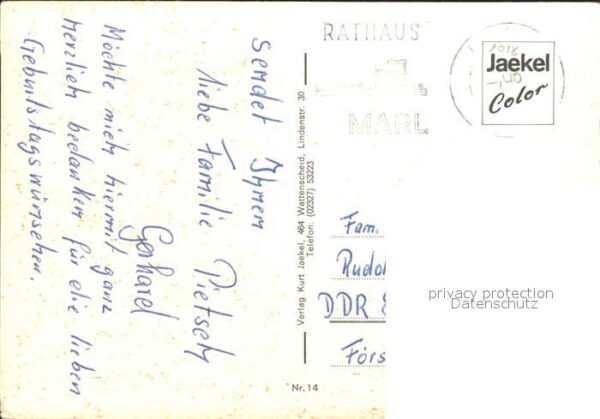 Sendet Ihnen
liebe Familie Pietsch
Gerhard
Möchte mich hiermit ganz
herzlich bedanken für die lieben
Geburtstagswünschen.
Verlag Kurt Jaekel, 464 Wattenscheid, Lindenstr. 30
Telefon: (02327) 53223
Nr. 14
RATHAUS
MARL
1018
-,40
Jaekel
Color
Fam.
Rudol
DDR
Förs
privacy protection
Datenschutz